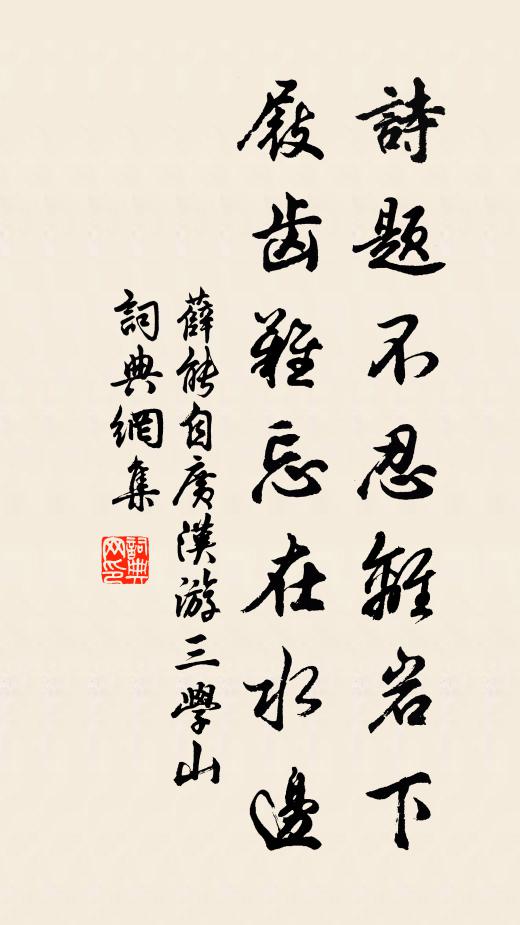 詩題不忍離岩下
屐齒難忘在水邊
薛能自廣漢游三學山
詞典網集
詞典網印